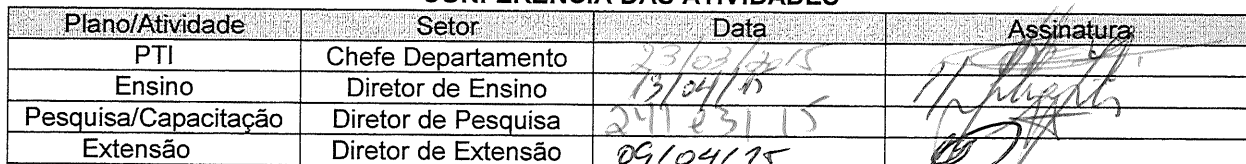 CONFERÊNCIA DAS ATIVIDADES
Plano/Atividade Setor Data Assinatura
PTI Chefe Departamento 23/03/2015
Ensino Diretor de Ensino 13/04/15
Pesquisa/Capacitação Diretor de Pesquisa 24/03/15
Extensão Diretor de Extensão 09/04/15